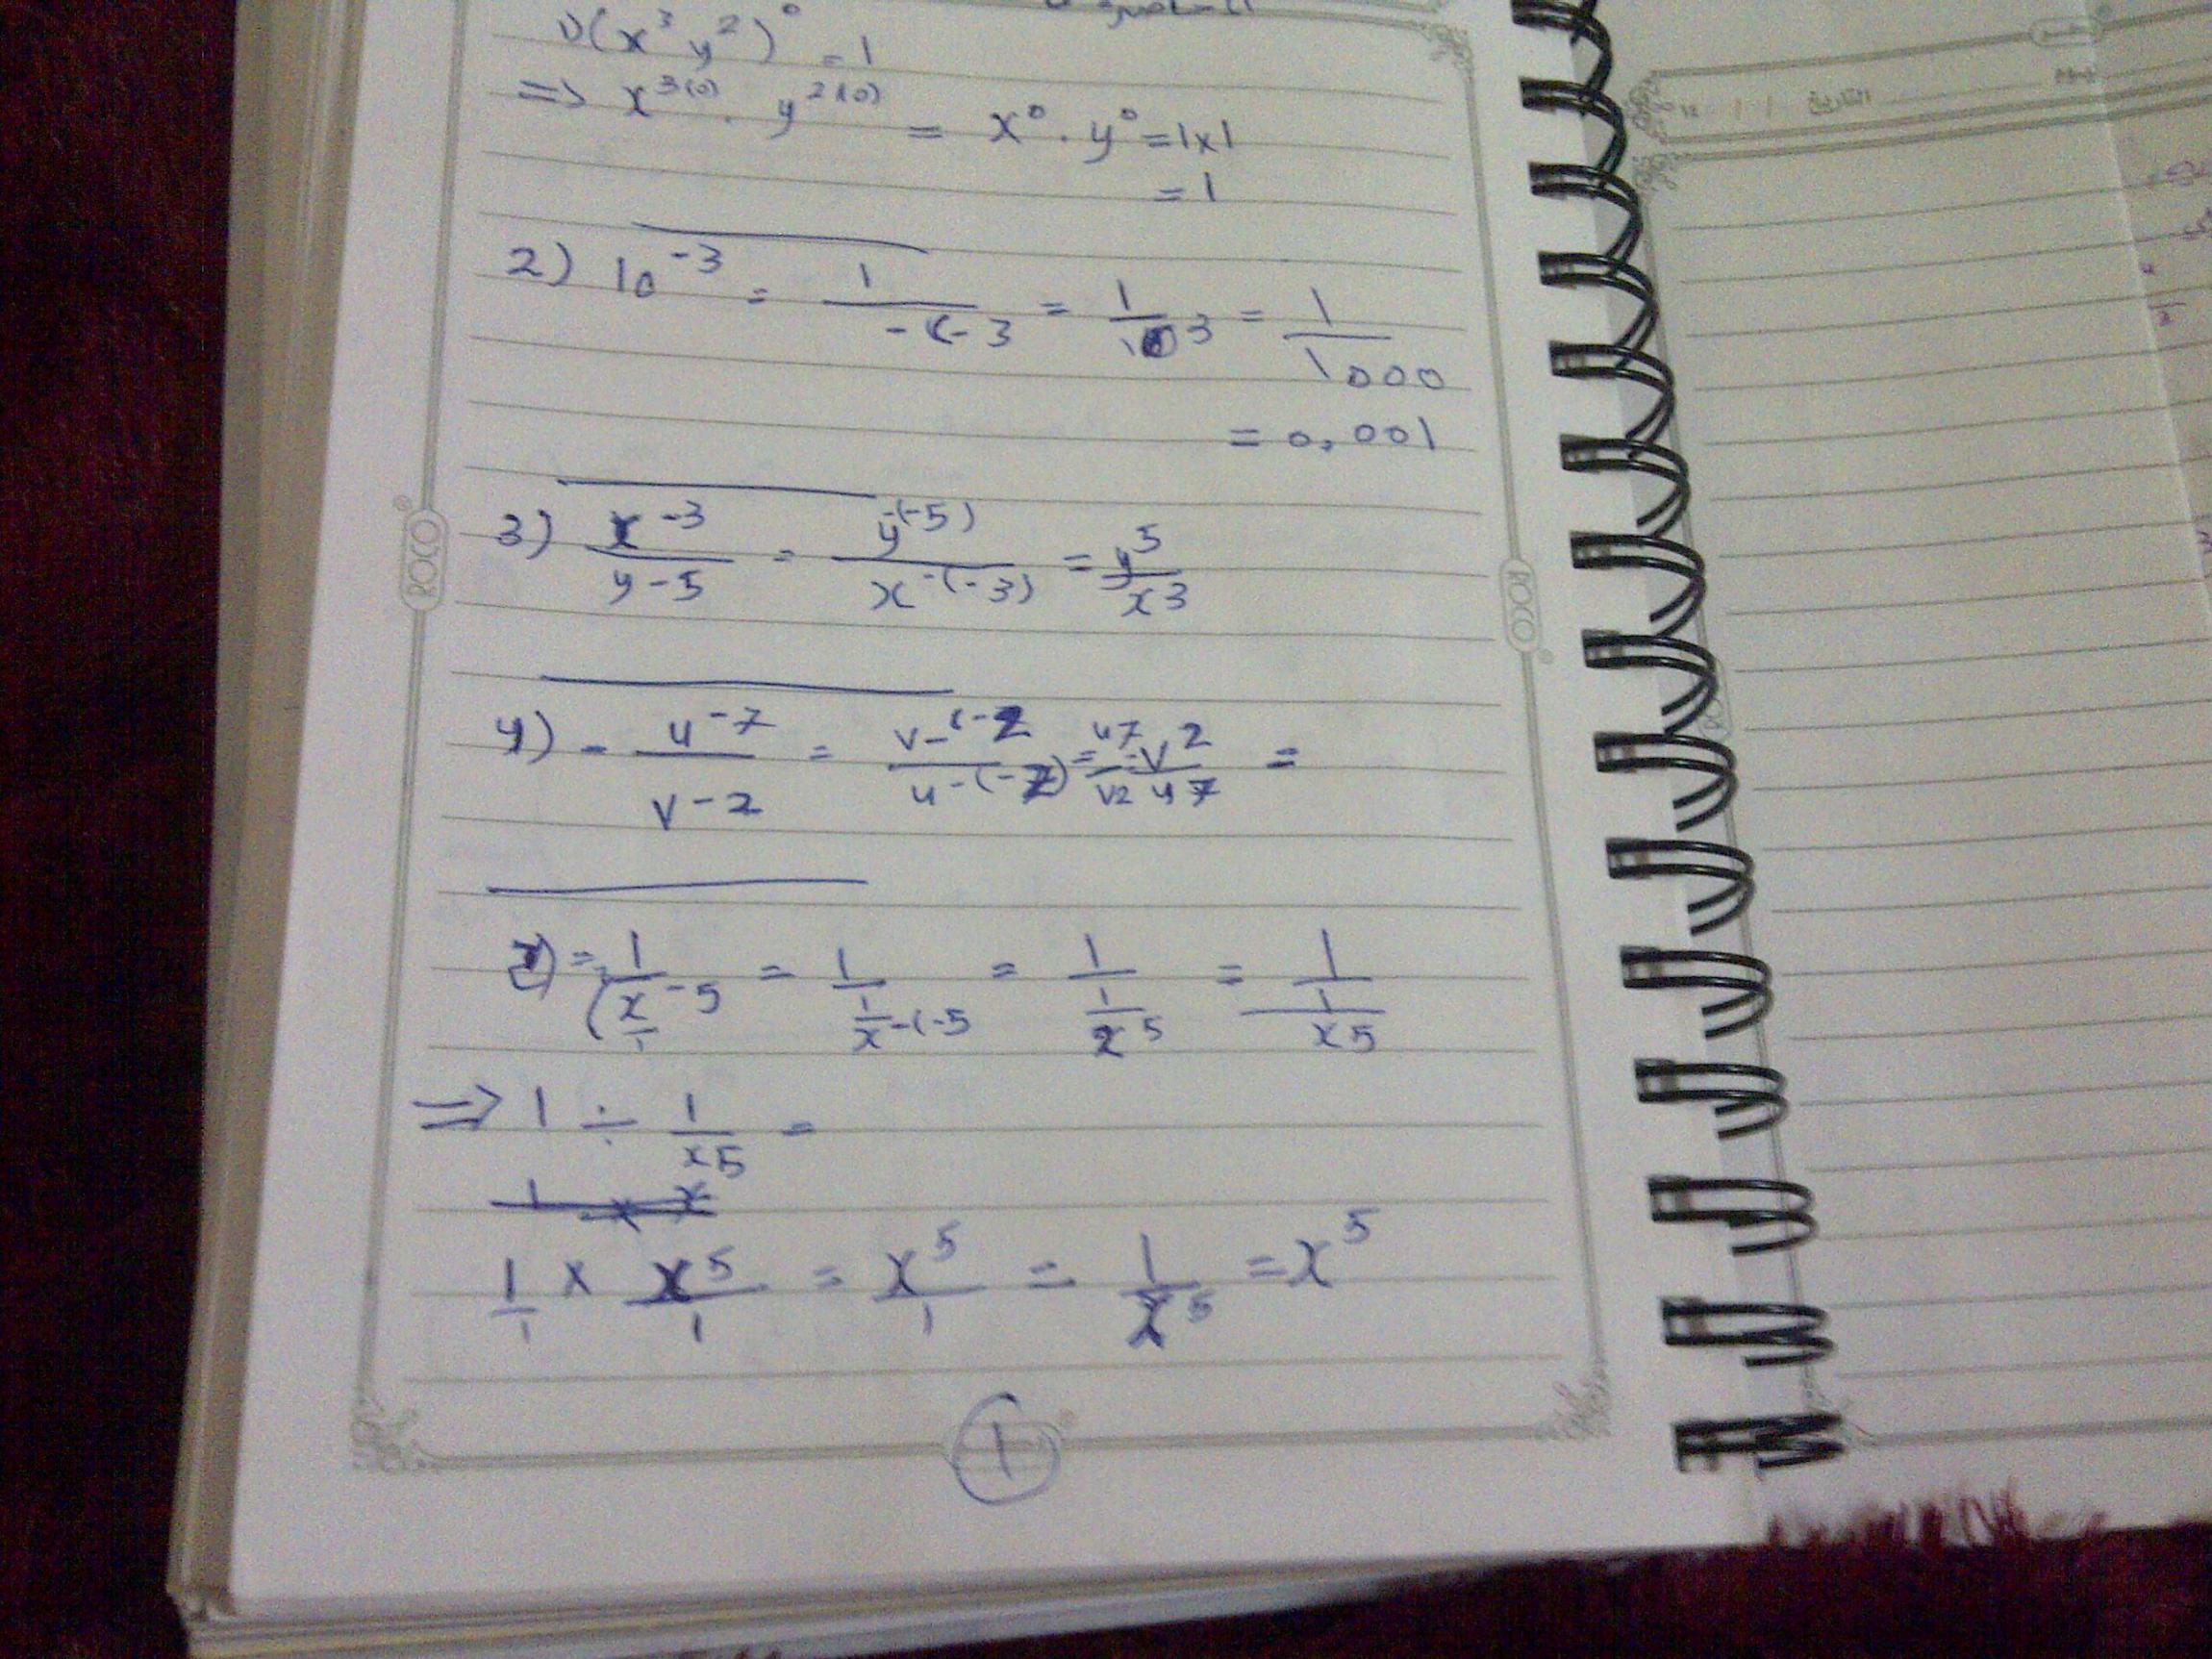 1) (x³ y²)⁰ = 1
=> x³⁽⁰⁾ . y²⁽⁰⁾ = x⁰ . y⁰ = 1x1
= 1
2) 10⁻³ = 1/-(-3 = 1/10³ = 1/1000
= 0,001
3) x⁻³/y-5 = y⁻⁽⁻⁵⁾/x⁻⁽⁻³⁾ = y⁵/x3
4) - u⁻⁷/v-2 = v-(-2/u-(-7) = u7/v2 - v2/u7 =
= (1/x/1 -5 = 1/1/x-(-5 = 1/1/x5 = 1/1/x5
=> 1 ÷ 1/x5 =
1/1 x x5/1 = x⁵/1 = 1/x5 = x⁵
1
ROCO
ROCO
التاريخ / /